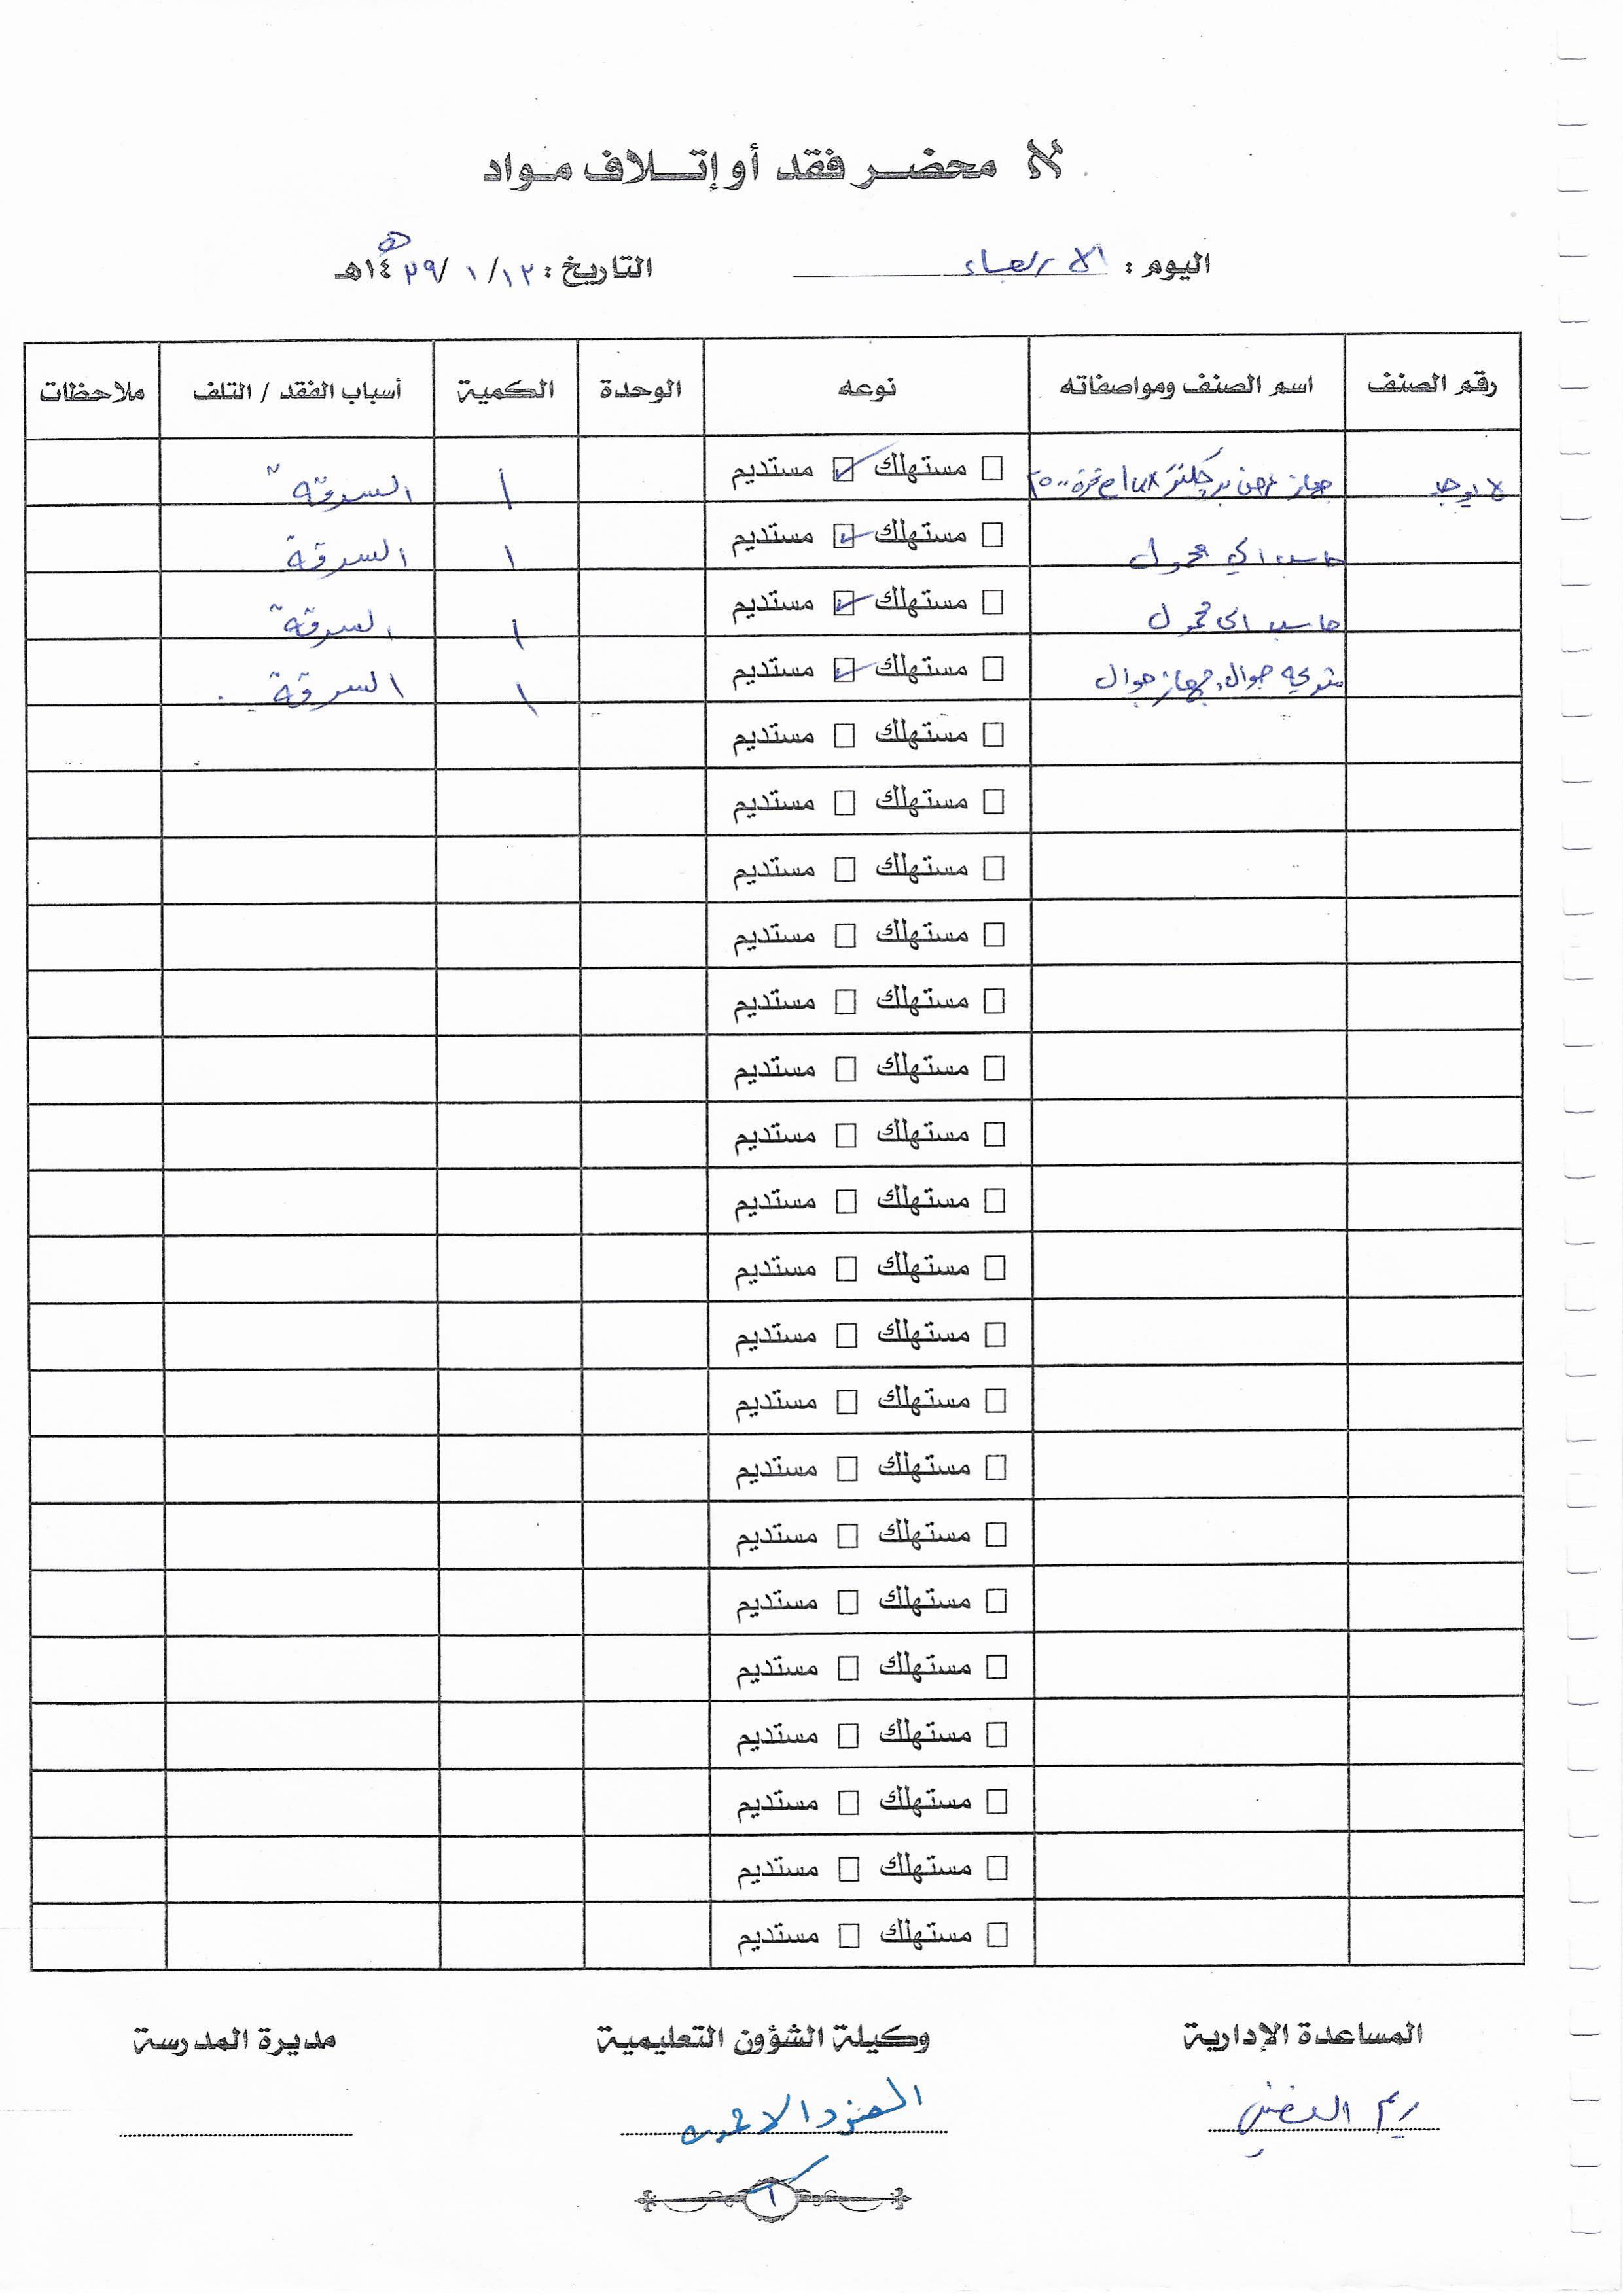 محضر فقد أو إتلاف مواد
اليوم : الاربعاء التاريخ : ١٢/ ١ /١٤٢٩هـ
رقم الصنف اسم الصنف ومواصفاته نوعه الوحدة الكمية أسباب الفقد / التلف ملاحظات
لا يوجد جهاز عرض بروجكتر □ مستهلك ☑ مستديم ١ السرقة
حاسب الي محمول □ مستهلك ☑ مستديم ١ السرقة
حاسب الي محمول □ مستهلك ☑ مستديم ١ السرقة
جوال جهاز جوال □ مستهلك ☑ مستديم ١ السرقة
□ مستهلك □ مستديم
□ مستهلك □ مستديم
□ مستهلك □ مستديم
□ مستهلك □ مستديم
□ مستهلك □ مستديم
□ مستهلك □ مستديم
□ مستهلك □ مستديم
□ مستهلك □ مستديم
□ مستهلك □ مستديم
□ مستهلك □ مستديم
□ مستهلك □ مستديم
□ مستهلك □ مستديم
□ مستهلك □ مستديم
□ مستهلك □ مستديم
□ مستهلك □ مستديم
□ مستهلك □ مستديم
□ مستهلك □ مستديم
□ مستهلك □ مستديم
□ مستهلك □ مستديم
المساعدة الإدارية وكيلة الشؤون التعليمية مديرة المدرسة
ريم
١